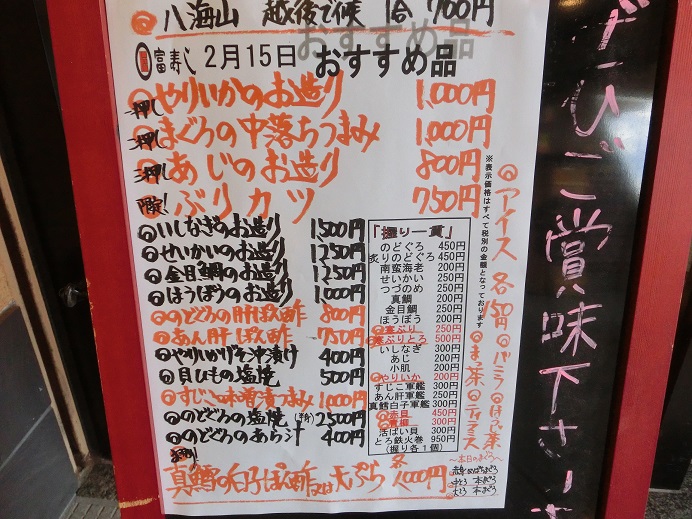 八海山 越後で候 1合 700円
富寿し 2月15日 おすすめ品
一押し やりいかのお造り 1,000円
二押し まぐろの中落ちつまみ 1,000円
三押し あじのお造り 800円
限定! ぶりカツ 750円
いしなぎのお造り 1500円
せいかいのお造り 1250円
金目鯛のお造り 1250円
ほうぼうのお造り 1,000円
のどぐろの肝ぽん酢 800円
あん肝ぽん酢 750円
やりいかげそ沖漬け 400円
貝ひもの塩焼 500円
すじこ味噌漬つまみ 1000円
のどぐろの塩焼 (半身) 2500円
のどぐろのあら汁 400円
真鱈の白子ぽん酢又は天ぷら 各1,000円
「握り一貫」
のどぐろ 450円
炙りのどぐろ 450円
南蛮海老 200円
せいかい 250円
つづのめ 200円
真鯛 250円
金目鯛 250円
ほうぼう 200円
寒ぶり 250円
寒ぶりとろ 500円
いしなぎ 300円
あじ 200円
小肌 200円
やりいか 200円
すじこ軍艦 300円
あん肝軍艦 300円
真鱈白子軍艦 300円
赤貝 450円
青柳 300円
活ばい貝 300円
とろ鉄火巻 950円
(握り各1個)
※表示価格はすべて税別の金額となっております
アイス 各150円
バニラ
ほうじ茶
抹茶
ティラミス
〜本日のまぐろ〜
中とろ 本まぐろ
大とろ 本まぐろ
ぜひご賞味下さい